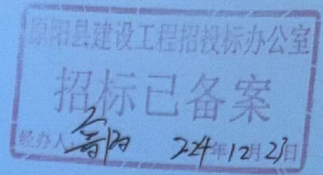 原阳县建设工程招投标办公室
招标已备案
经办人 224年12月23日